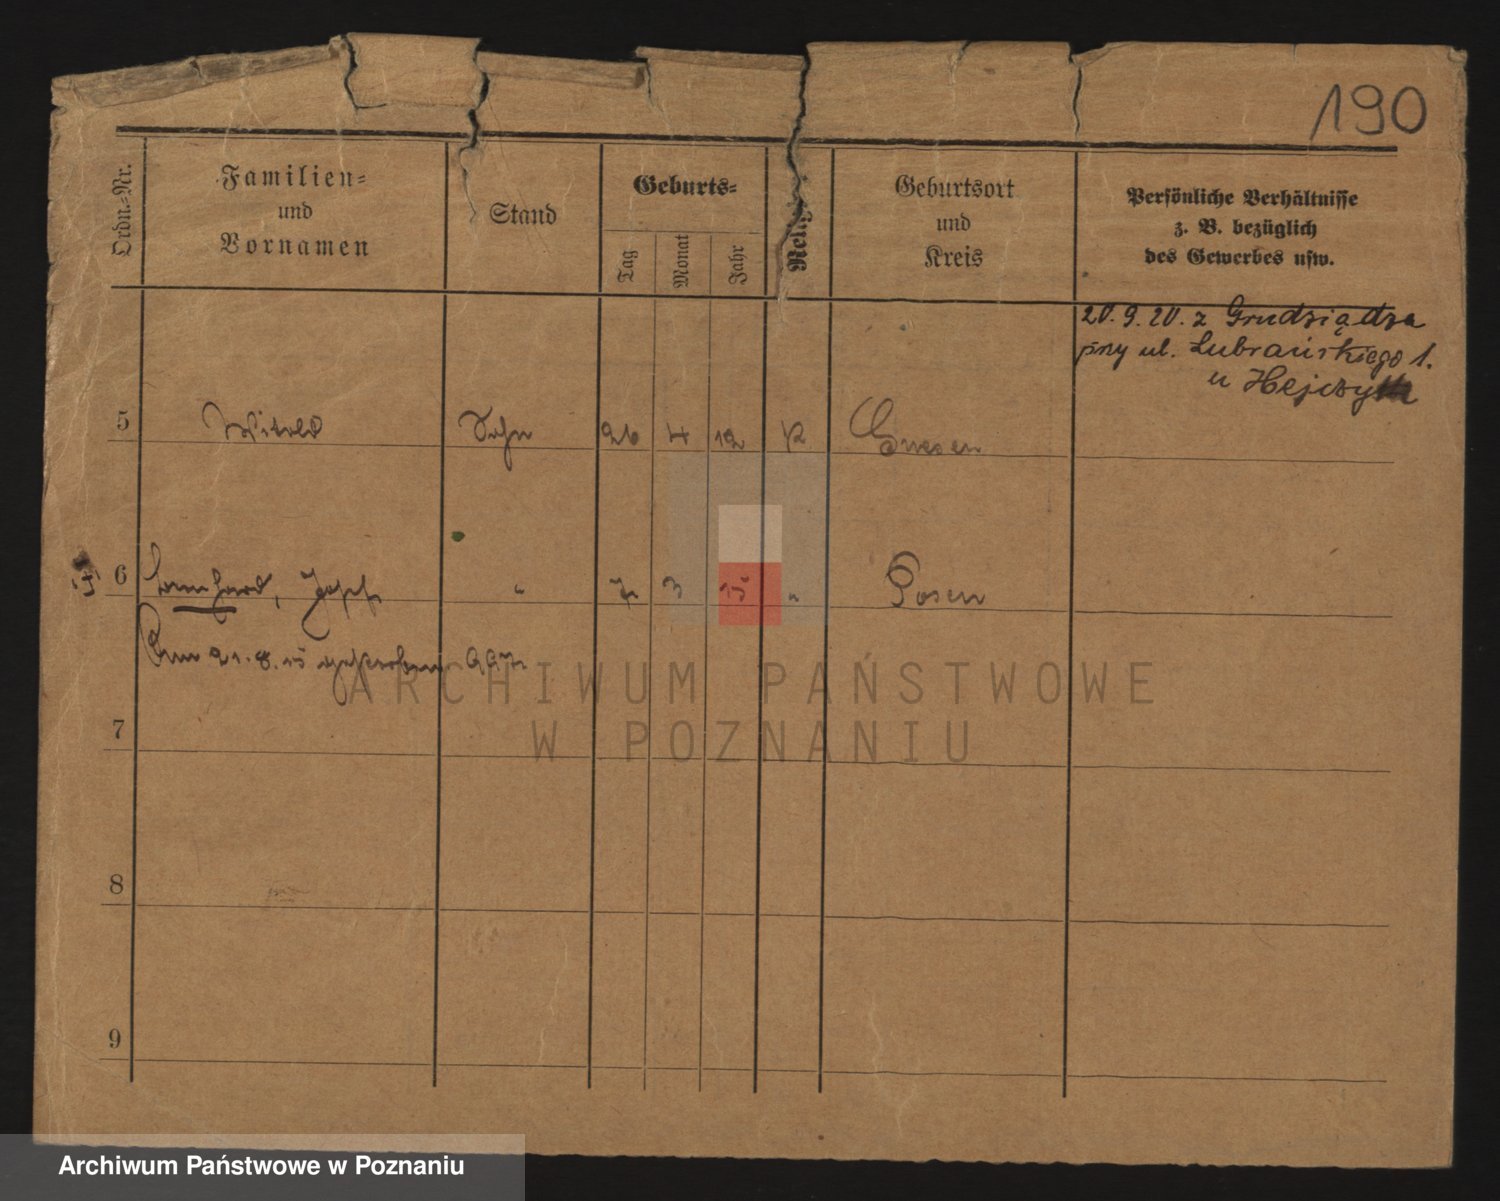 190
Ordn.-Nr.
Familien-
und
Vornamen
Stand
Geburts-
Tag
Monat
Jahr
Relig
Geburtsort
und
Kreis
Persönliche Verhältnisse
z. B. bezüglich
des Gewerbes usw.
20.9.20. z Grudziądza
przy ul. Lubrańskiego 1.
u
5 Witold Sohn 26 4 12 K Gnesen
6 Leonhard, Josef " 7 3 15 " Posen
Am 21.8.15 gestorben
7
8
9
ARCHIWUM PAŃSTWOWE
W POZNANIU
Archiwum Państwowe w Poznaniu